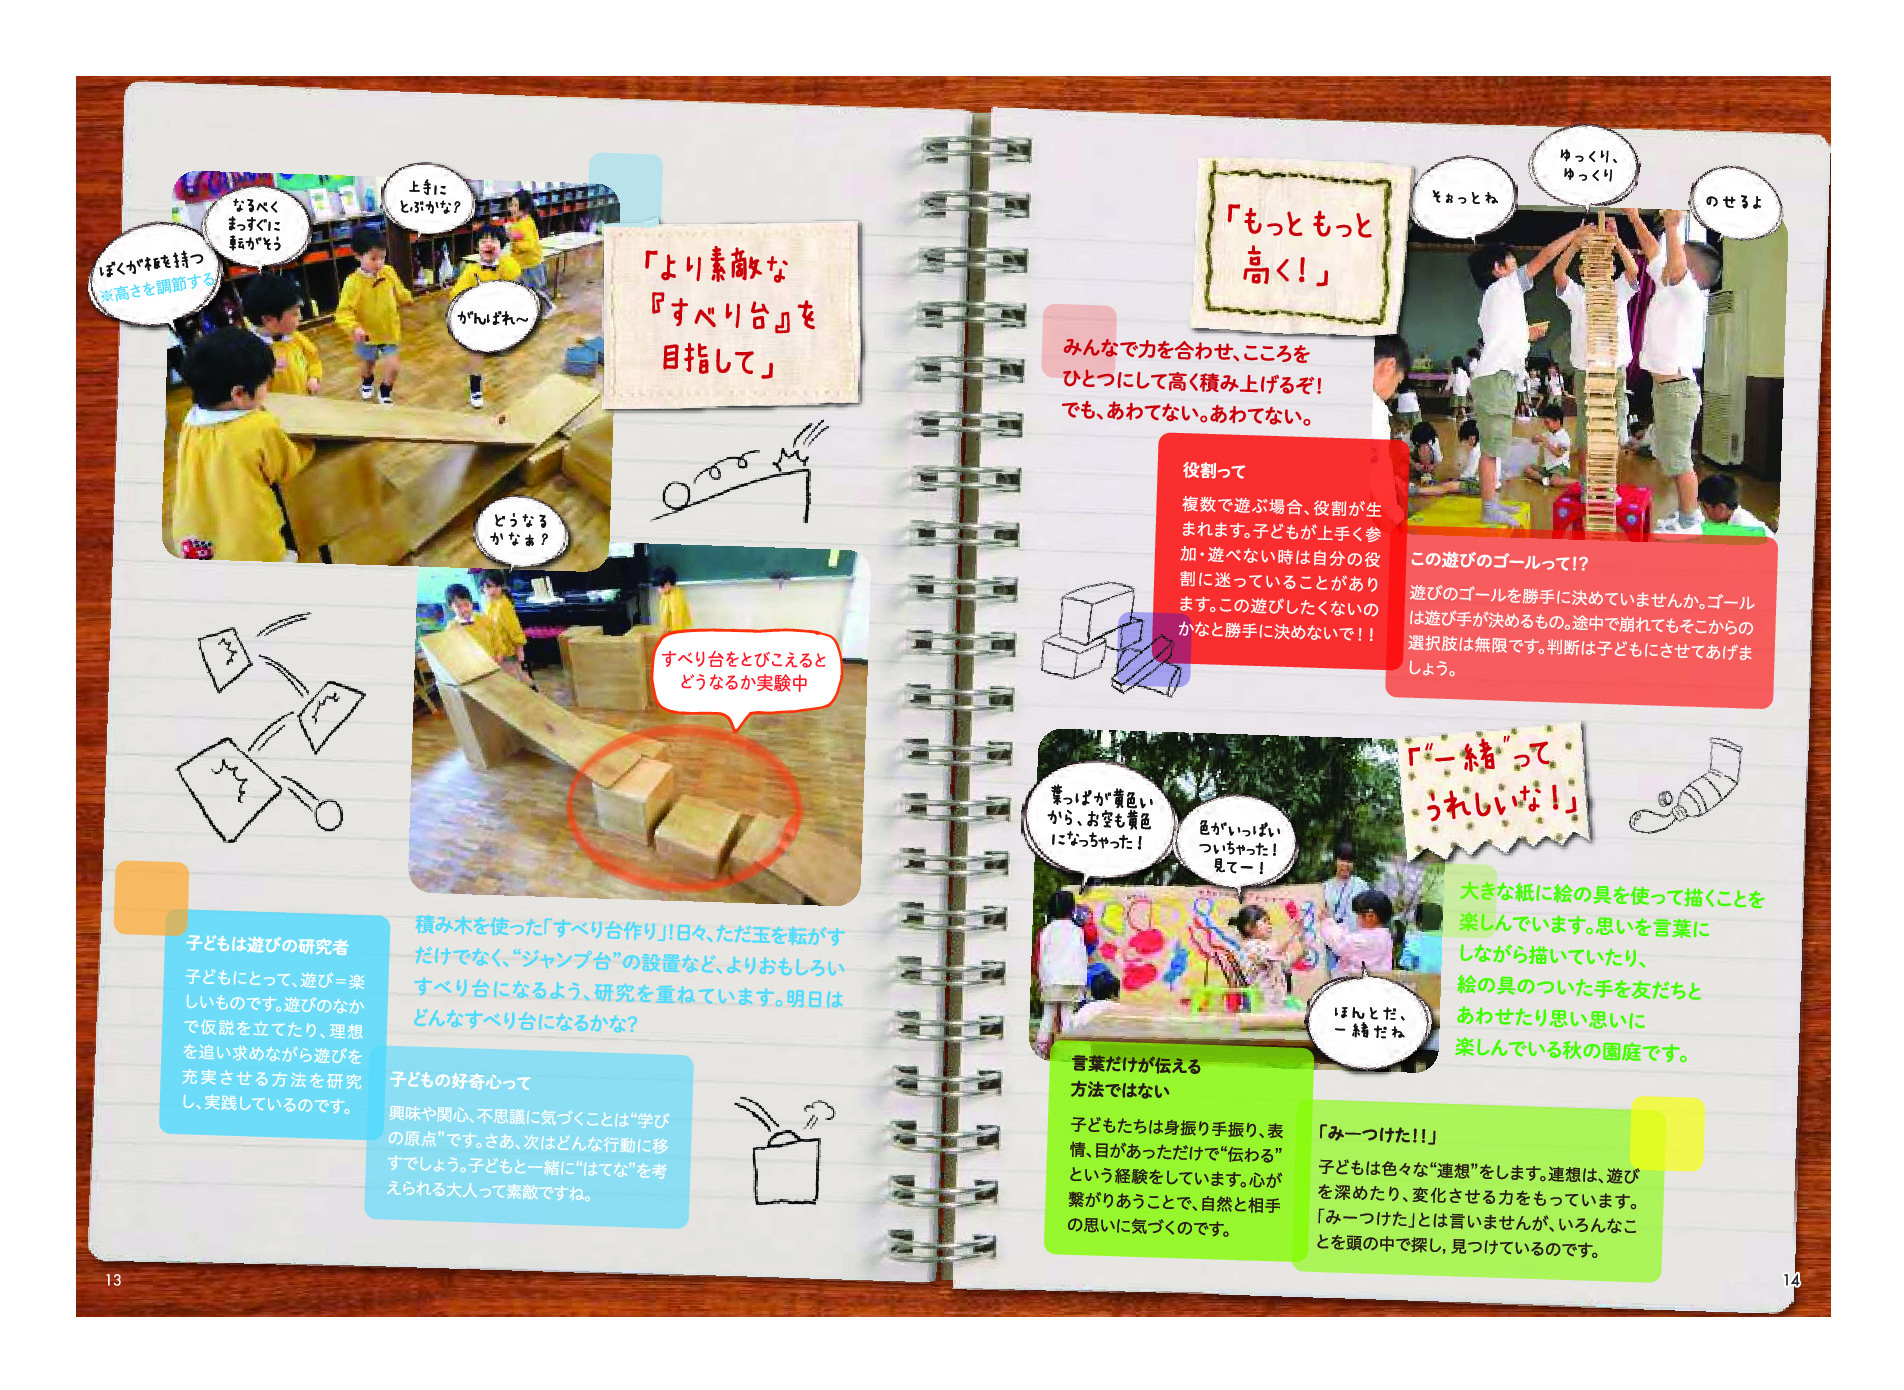 ぼくが板を持つ
※高さを調節する
なるべく
まっすぐに
転がそう
上手に
とぶかな?
がんばれ〜
「より素敵な
『すべり台』を
目指して」
どうなる
かなぁ?
すべり台をとびこえると
どうなるか実験中
積み木を使った「すべり台作り」!日々、ただ玉を転がす
だけでなく、“ジャンプ台”の設置など、よりおもしろい
すべり台になるよう、研究を重ねています。明日は
どんなすべり台になるかな?
子どもは遊びの研究者
子どもにとって、遊び＝楽
しいものです。遊びのなか
で仮説を立てたり、理想
を追い求めながら遊びを
充実させる方法を研究
し、実践しているのです。
子どもの好奇心って
興味や関心、不思議に気づくことは“学び
の原点”です。さあ、次はどんな行動に移
すでしょう。子どもと一緒に“はてな”を考
えられる大人って素敵ですね。
13
「もっと もっと
高く!」
そぉっとね
ゆっくり、
ゆっくり
のせるよ
みんなで力を合わせ、こころを
ひとつにして高く積み上げるぞ!
でも、あわてない。あわてない。
役割って
複数で遊ぶ場合、役割が生
まれます。子どもが上手く参
加・遊べない時は自分の役
割に迷っていることがあり
ます。この遊びしたくないの
かなと勝手に決めないで!!
この遊びのゴールって!?
遊びのゴールを勝手に決めていませんか。ゴール
は遊び手が決めるもの。途中で崩れてもそこからの
選択肢は無限です。判断は子どもにさせてあげま
しょう。
「“一緒”って
うれしいな!」
葉っぱが黄色い
から、お空も黄色
になっちゃった!
色がいっぱい
ついちゃった!
見てー!
ほんとだ、
一緒だね
大きな紙に絵の具を使って描くことを
楽しんでいます。思いを言葉に
しながら描いていたり、
絵の具のついた手を友だちと
あわせたり思い思いに
楽しんでいる秋の園庭です。
言葉だけが伝える
方法ではない
子どもたちは身振り手振り、表
情、目があっただけで“伝わる”
という経験をしています。心が
繋がりあうことで、自然と相手
の思いに気づくのです。
「みーつけた!!」
子どもは色々な“連想”をします。連想は、遊び
を深めたり、変化させる力をもっています。
「みーつけた」とは言いませんが、いろんなこ
とを頭の中で探し，見つけているのです。
14